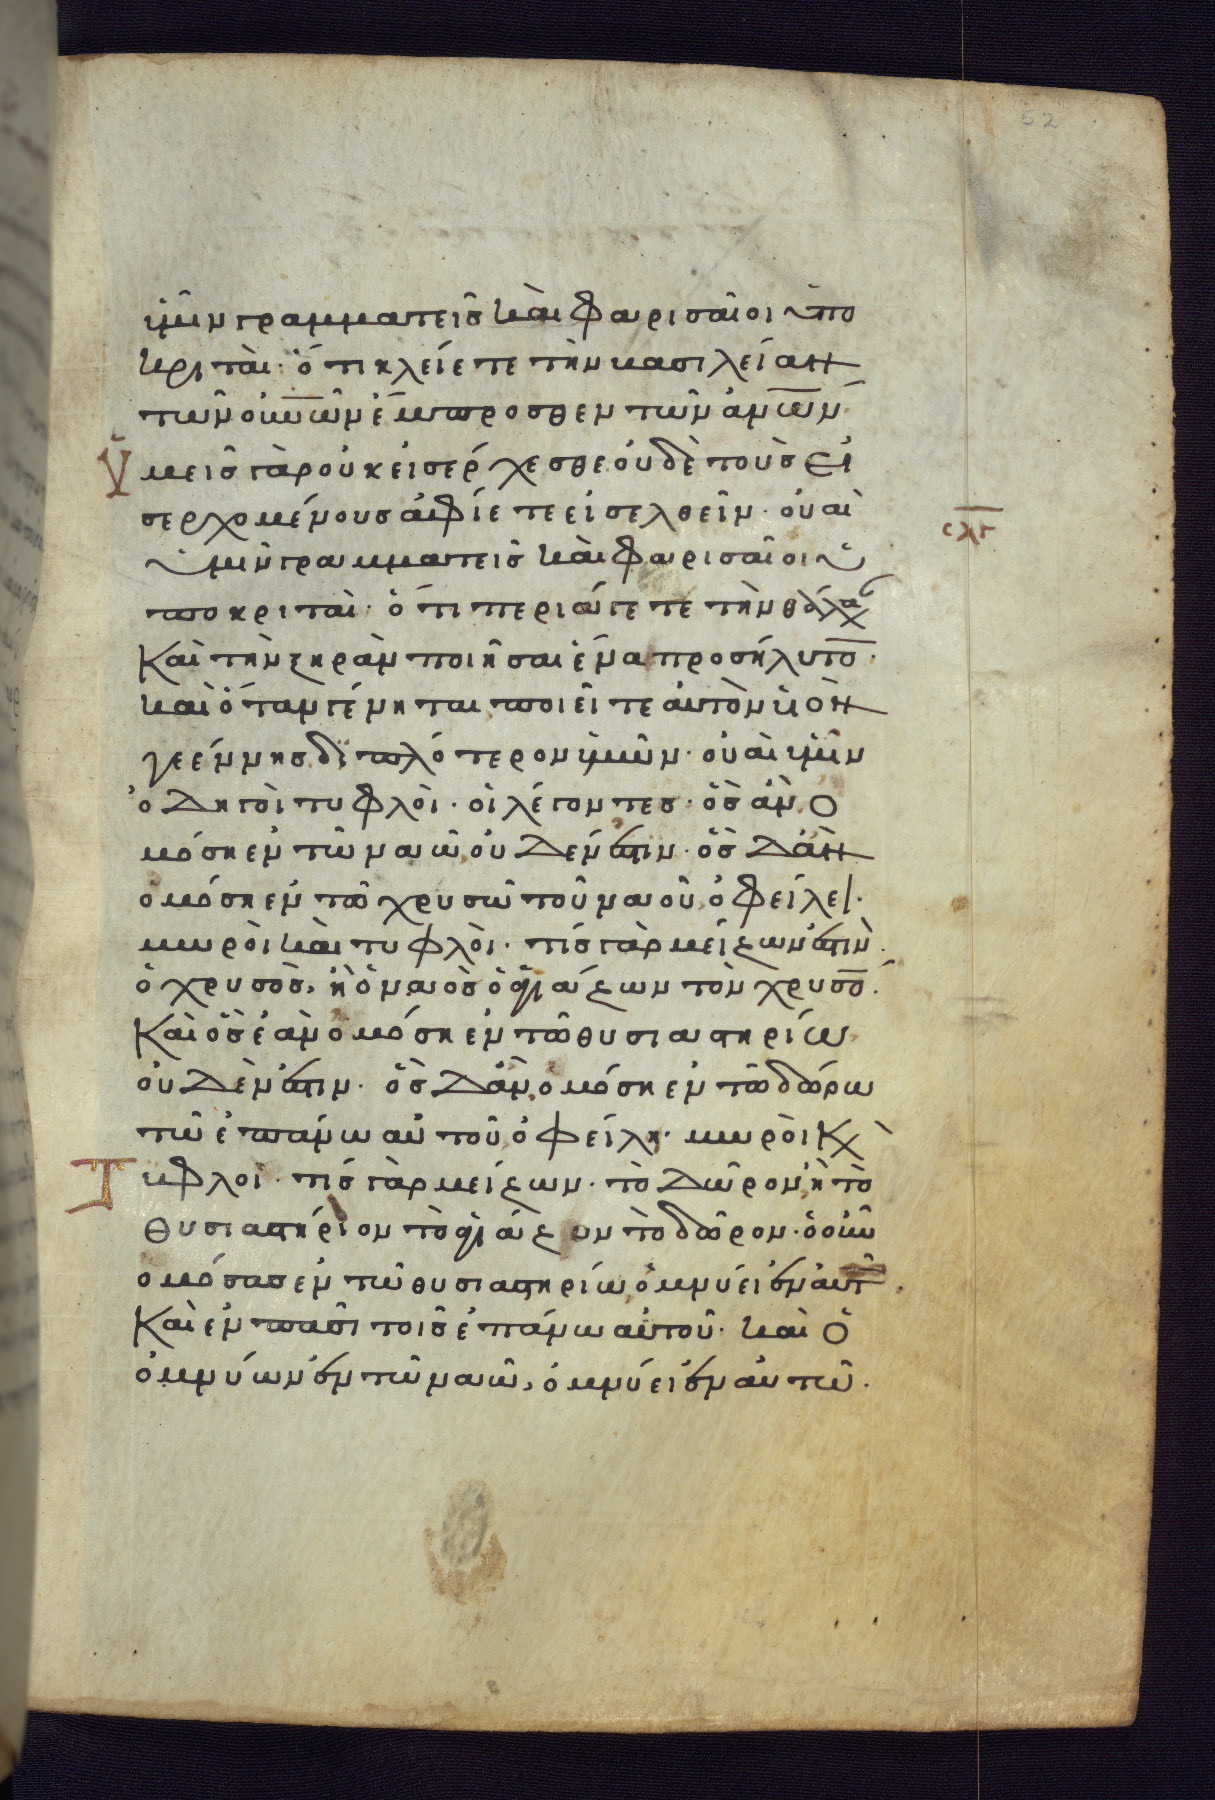 52
ὑμῖν γραμματεῖς καὶ φαρισαῖοι ὑπο
κριταὶ· ὅτι κλείετε τὴν βασιλείαν
τῶν οὐνῶν ἔμπροσθεν τῶν ἀνῶν·
ὑ
μεῖς γὰρ οὐκ εἰσέρχεσθε οὐδὲ τοὺς εἰ
σερχομένους ἀφίετε εἰσελθεῖν· οὐαὶ
σλγ
ὑμῖν γραμματεῖς καὶ φαρισαῖοι ὑ
ποκριταὶ· ὅτι περιάγετε τὴν θάλασ
καὶ τὴν ξηρὰν ποιῆσαι ἕνα προσήλυτο̅·
καὶ ὅταν γένηται ποιεῖτε αὐτὸν υἱὸν
γεέννης διπλότερον ὑμῶν· οὐαὶ ὑμῖν
ὁδηγοὶ τυφλοὶ· οἱ λέγοντες· ὃς ἂν ὀ
μόση ἐν τῶ ναῶ οὐδέν ἐστιν· ὃς δ ἂν
ὀμόση ἐν τῶ χρυσῶ τοῦ ναοῦ, ὀφείλει·
μωροὶ καὶ τυφλοὶ· τίς γὰρ μείζων ἐστὶν·
ὁ χρυσὸς, ἢ ὁ ναὸς ὁ ἁγιάζων τὸν χρυσο̅·
καὶ ὃς ἐὰν ὀμόση ἐν τῶ θυσιαστηρίω
οὐδὲν ἐστιν· ὃς δ ἂν ὀμόση ἐν τῶ δώρω
τῶ ἐπάνω αὐτοῦ, ὀφείλη· μωροὶ κ
Τ
υφλοι· τίς γὰρ μείζων· τὸ δῶρον, ἢ τὸ
θυσιαστήριον τὸ ἁγιάζον τὸ δῶρον· ὁ οὖν
ὀμόσας ἐν τῶ θυσιαστηρίω, ὀμνύει ἐν αὐτ
καὶ ἐν πᾶσι τοῖς ἐπάνω αὐτοῦ· καὶ ὁ
ὀμνύων ἐν τῶ ναῶ, ὀμνύει ἐν αὐτῶ·